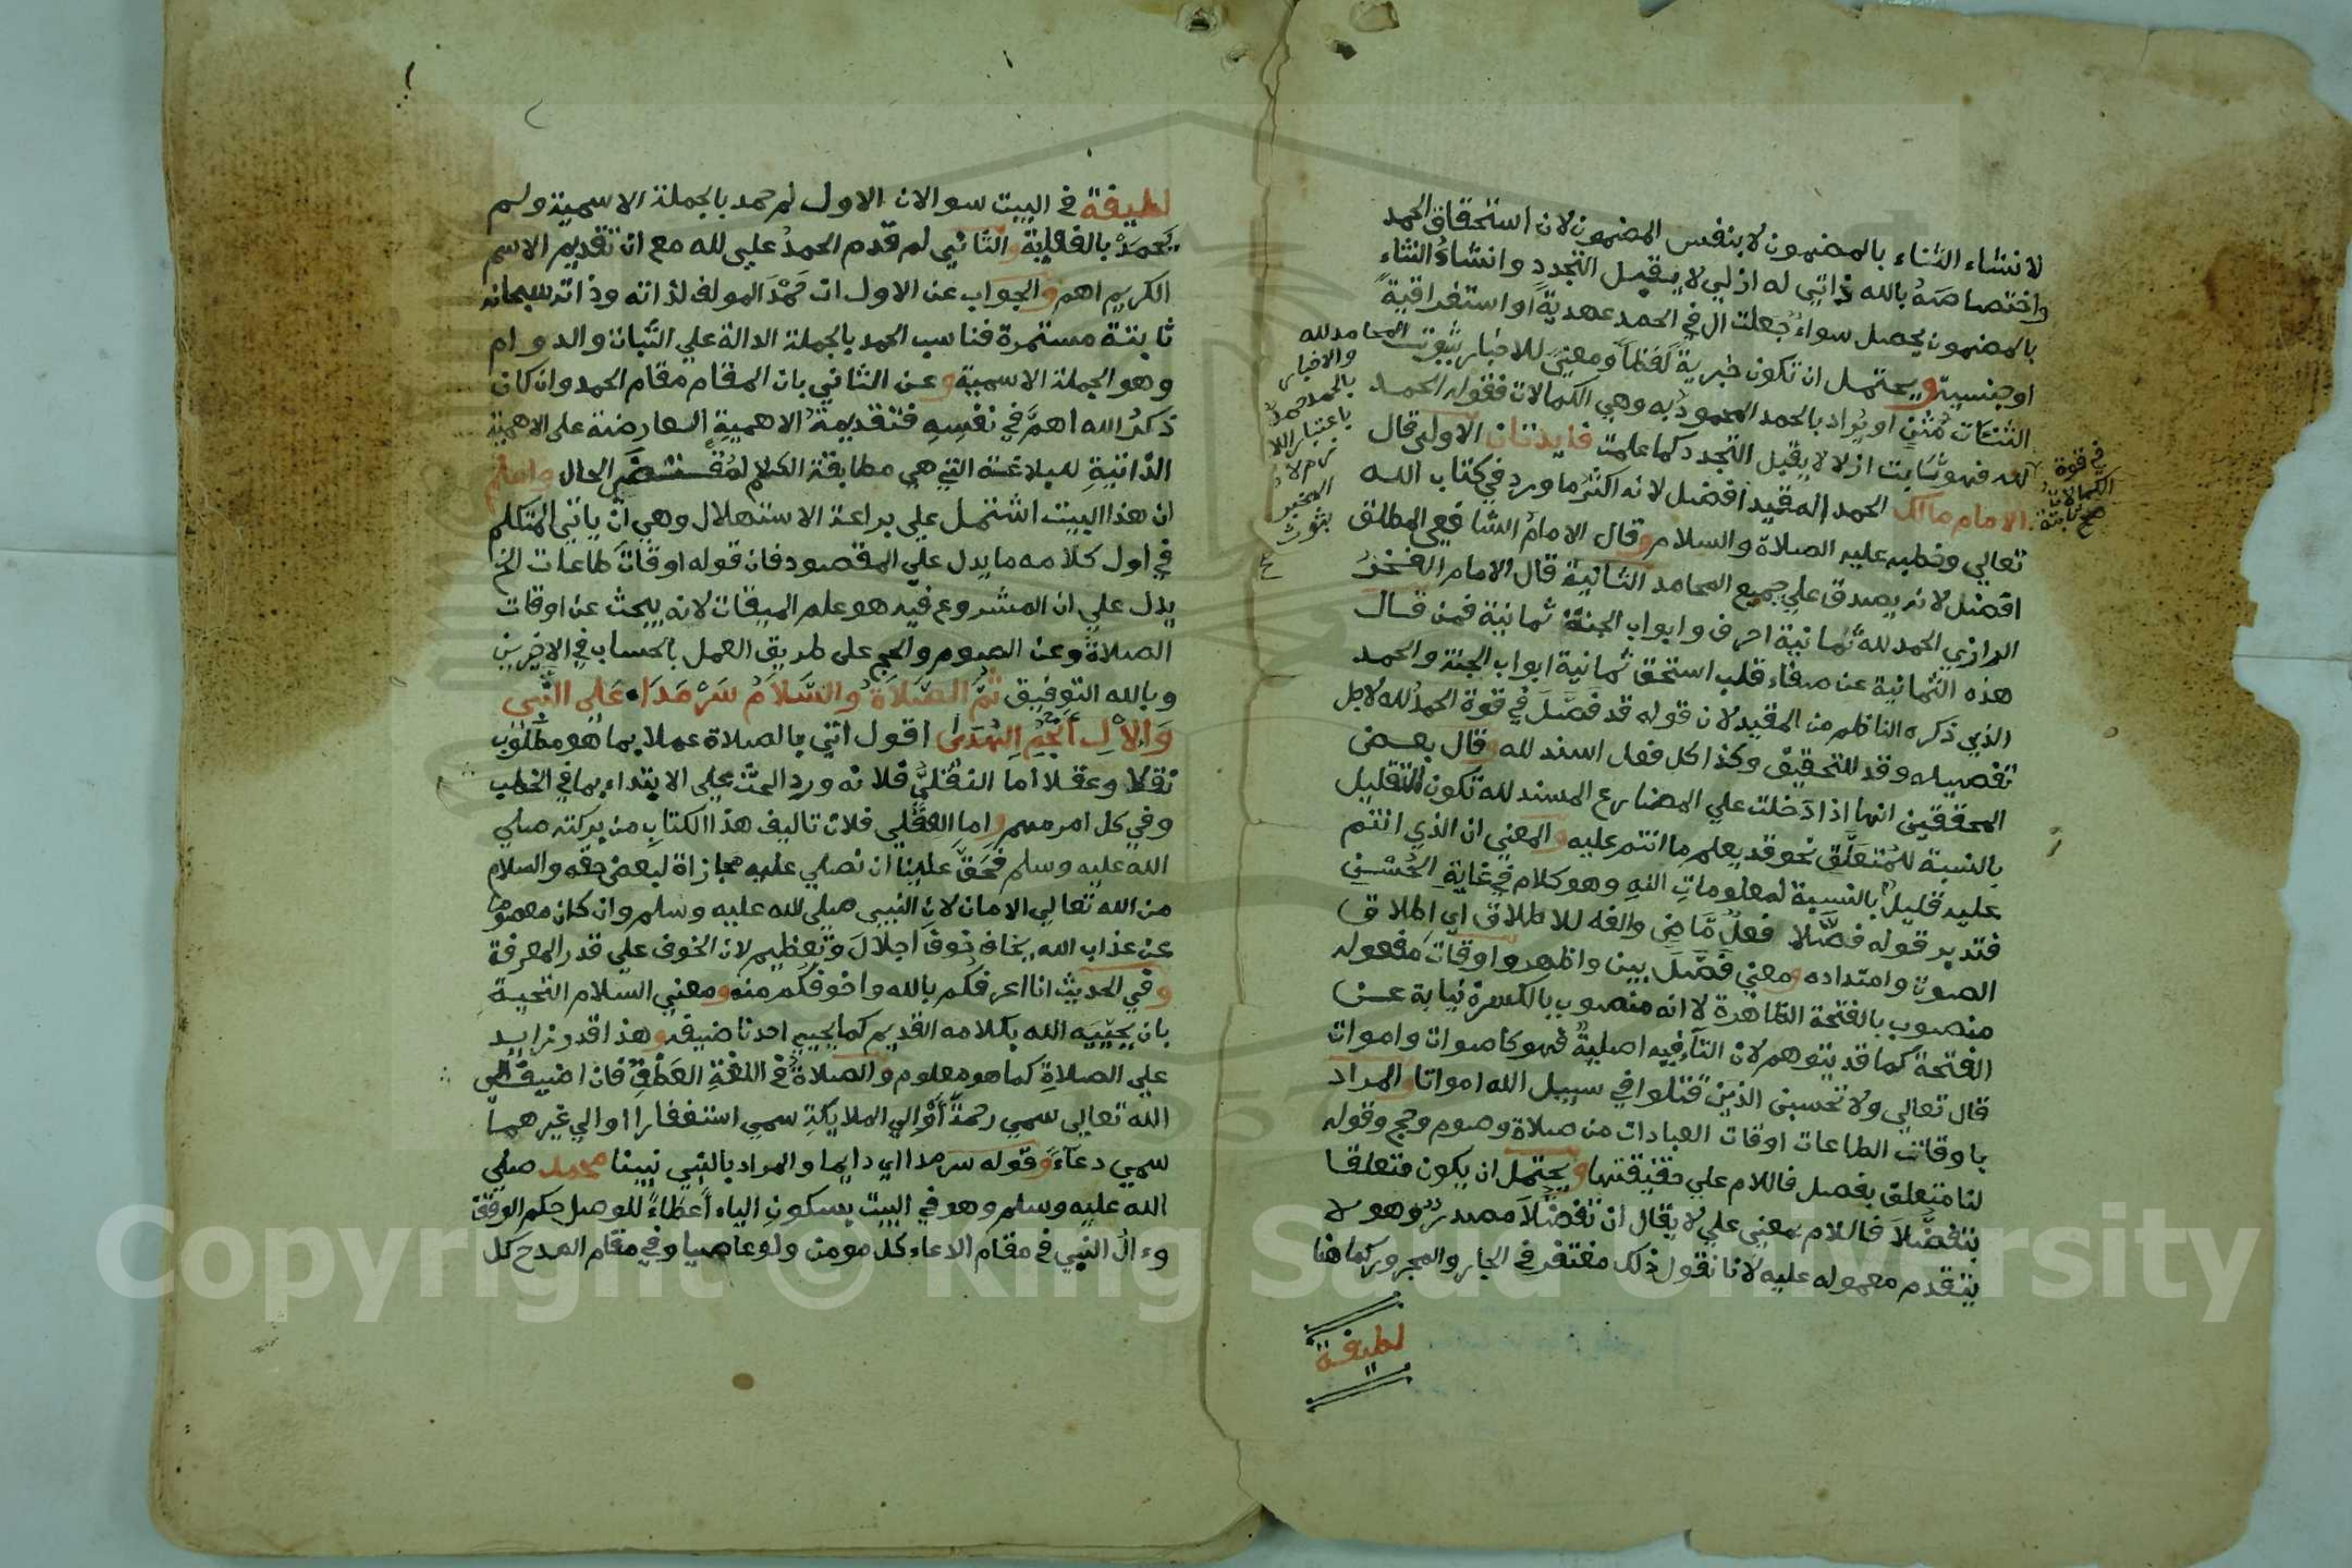 لانشاء الثناء بالمضمون لا بنفس المضمون لان استحقاق الحمد
واختصاصه بالله ذاتي له ازلي لا يقبل التجدد وانشاء الثناء
بالمضمون يحصل سواء جعلت ال في الحمد عهدية او استغراقية
او جنسية ويحتمل ان تكون خبرية لفظا ومعنى للاخبار بثبوت المحامد لله
والاخبار
بالحمد حمد
باعتبار اللا
المخبر
بثبوت
الثنآت مثن او يراد بالحمد المحمود به وهي الكمالات فقوله الحمد
في قوة
الكمالات
ثابتة
صح
لله فهو ثابت ازلا لا يقبل التجدد كما علمت فايدتان الاولى قال
الامام مالك الحمد المقيد افضل لانه اكثر ما ورد في كتاب الله
تعالي وخطبه عليه الصلاة والسلام وقال الامام الشافعي المطلق
افضل لانه يصدق علي جميع المحامد الثانية قال الامام الفخر
الرازي الحمد لله ثمانية احرف وابواب الجنة ثمانية فمن قال
هذه الثمانية عن صفاء قلب استحق ثمانية ابواب الجنة والحمد
الذي ذكره الناظم من المقيد لان قوله قد فصل في قوة الحمد لله لاجل
تفصيله وقد للتحقيق وكذا كل فعل اسند لله وقال بعض
المحققين انها اذا دخلت علي المضارع المسند لله تكون للتقليل
بالنسبة للمتعلق نحو قد يعلم ما انتم عليه والمعني ان الذي انتم
عليه قليل بالنسبة لمعلومات الله وهو كلام في غاية الحسن
فتدبر قوله فصلا فعل ماضي والفه للاطلاق اي اطلاق
الصوت وامتداده ومعني فصل بين واظهر واوقات مفعوله
منصوب بالفتحة الظاهرة لا انه منصوب بالكسرة نيابة عن
الفتحة كما قد يتوهم لان التآء فيه اصلية فهو كاصوات واموات
قال تعالي ولا تحسبن الذين قتلوا في سبيل الله امواتا والمراد
باوقات الطاعات اوقات العبادات من صلاة وصوم وحج وقوله
لنا متعلق بفصل فاللام علي حقيقتها ويحتمل ان يكون متعلقا
بتفضلا فاللام بمعني علي لا يقال ان تفضلا مصدر وهو لا
يتقدم معموله عليه لانا نقول ذلك مغتفر في الجار والمجرور كما هنا
لطيفة
لطيفة في البيت سوالان الاول لم حمد بالجملة الاسمية ولم
يحمد بالفعلية والثاني لم قدم الحمد علي لله مع ان تقديم الاسم
الكريم اهم والجواب عن الاول ان حمد المولف لذاته وذاته سبحانه
ثابتة مستمرة فناسب الحمد بالجملة الدالة علي الثبات والدوام
وهو الجملة الاسمية وعن الثاني بان المقام مقام الحمد وان كان
ذكر الله اهم في نفسه فتقديمه الاهمية العارضة على الاهمية
الذاتية للبلاغة التي هي مطابقة الكلام لمقتضى الحال واعلم
ان هذا البيت اشتمل علي براعة الاستهلال وهي ان ياتي المتكلم
في اول كلامه ما يدل علي المقصود فان قوله اوقات طاعات الخ
يدل علي ان المشروع فيه هو علم الميقات لانه يبحث عن اوقات
الصلاة وعن الصوم والحج على طريق العمل بالحساب في الاخيرين
وبالله التوفيق ثم الصلاة والسلام سرمدا على النبي
والال انجم الهدى اقول اتي بالصلاة عملا بما هو مطلوب
نقلا وعقلا اما النقلي فلانه ورد الحث على الابتداء بها في الخطب
وفي كل امر مهم واما العقلي فلان تاليف هذا الكتاب من بركته صلي
الله عليه وسلم فحق علينا ان نصلي عليه مجازاة لبعض حقه والسلام
من الله تعالي الامان لان النبي صلى الله عليه وسلم وان كان معصوما
عن عذاب الله يخاف خوف اجلال وتعظيم لان الخوف علي قدر المعرفة
وفي الحديث انا اعرفكم بالله واخوفكم منه ومعني السلام التحية
بان يحييه الله بكلامه القديم كما يحيي احدنا ضيفه وهذا قدر زايد
علي الصلاة كما هو معلوم والصلاة في اللغة العطف فان اضيف الى
الله تعالى سمي رحمة او الي الملايكة سمي استغفارا او الي غيرهما
سمي دعاء وقوله سرمدا اي دايما والمراد بالنبي نبينا محمد صلي
الله عليه وسلم وهو في البيت بسكون الياء اعطاء للوصل حكم الوقف
وءال النبي في مقام الدعاء كل مومن ولو عاصيا وفي مقام المدح كل
Copyright © King Saud University